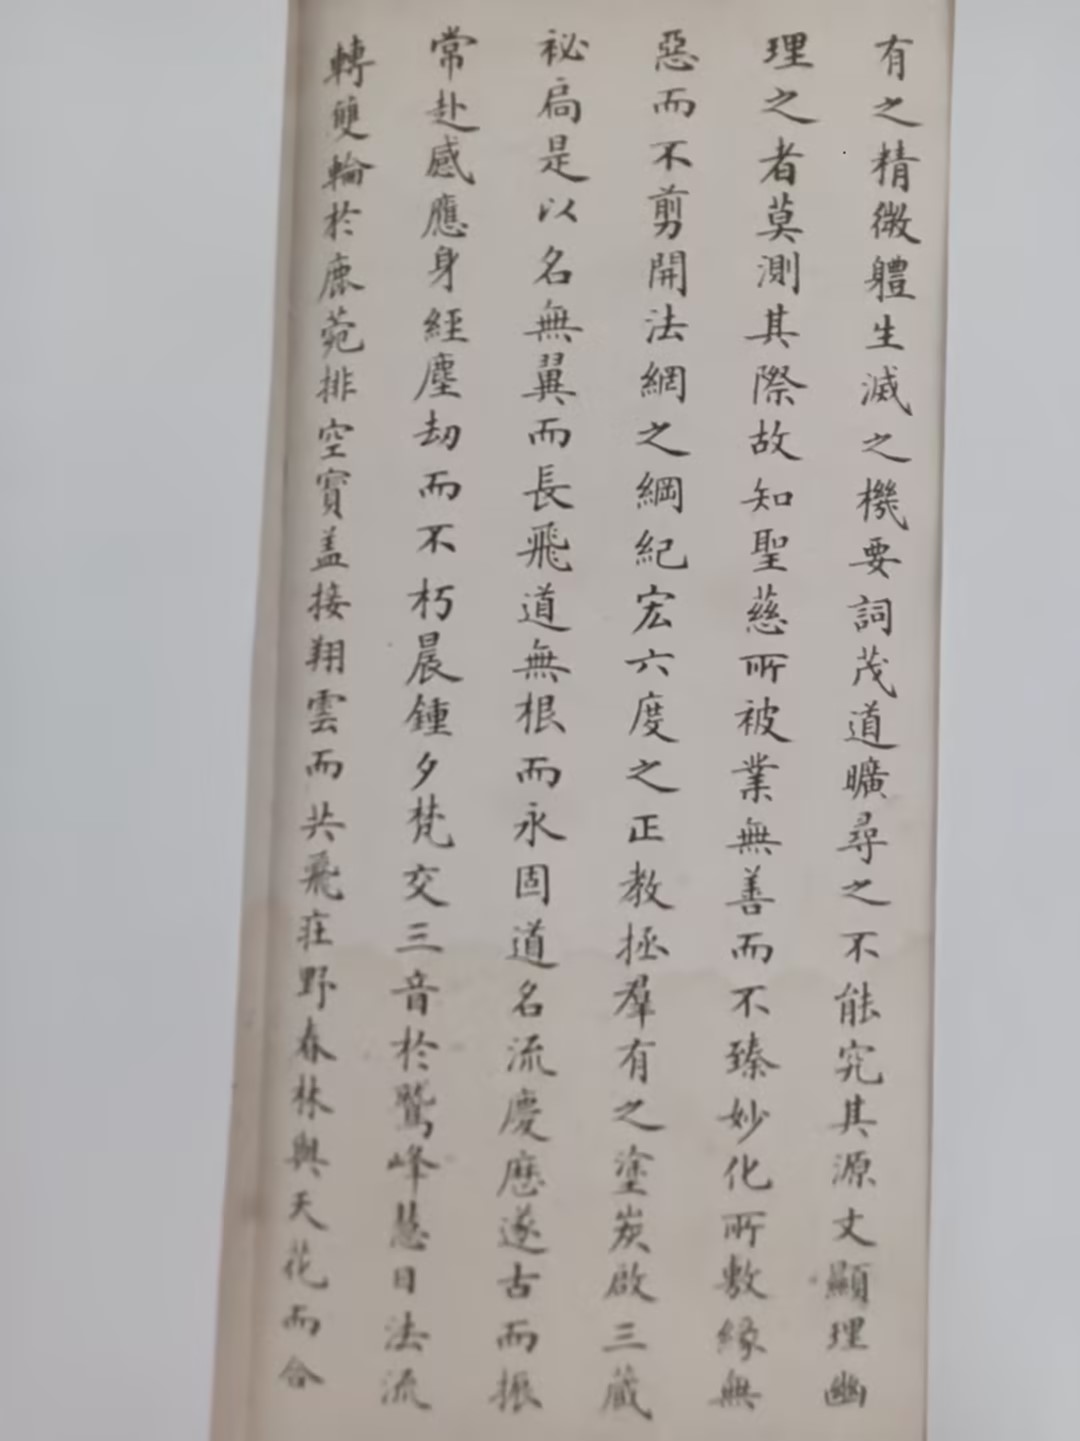 有之精微體生滅之機要詞茂道曠尋之不能究其源文顯理幽
理之者莫測其際故知聖慈所被業無善而不臻妙化所敷緣無
惡而不剪開法網之綱紀宏六度之正教拯羣有之塗炭啟三藏
祕扃是以名無翼而長飛道無根而永固道名流慶歷遂古而振
常赴感應身經塵劫而不朽晨鍾夕梵交三音於鷲峰慧日法流
轉雙輪於鹿菀排空寶盖接翔雲而共飛莊野春林與天花而合